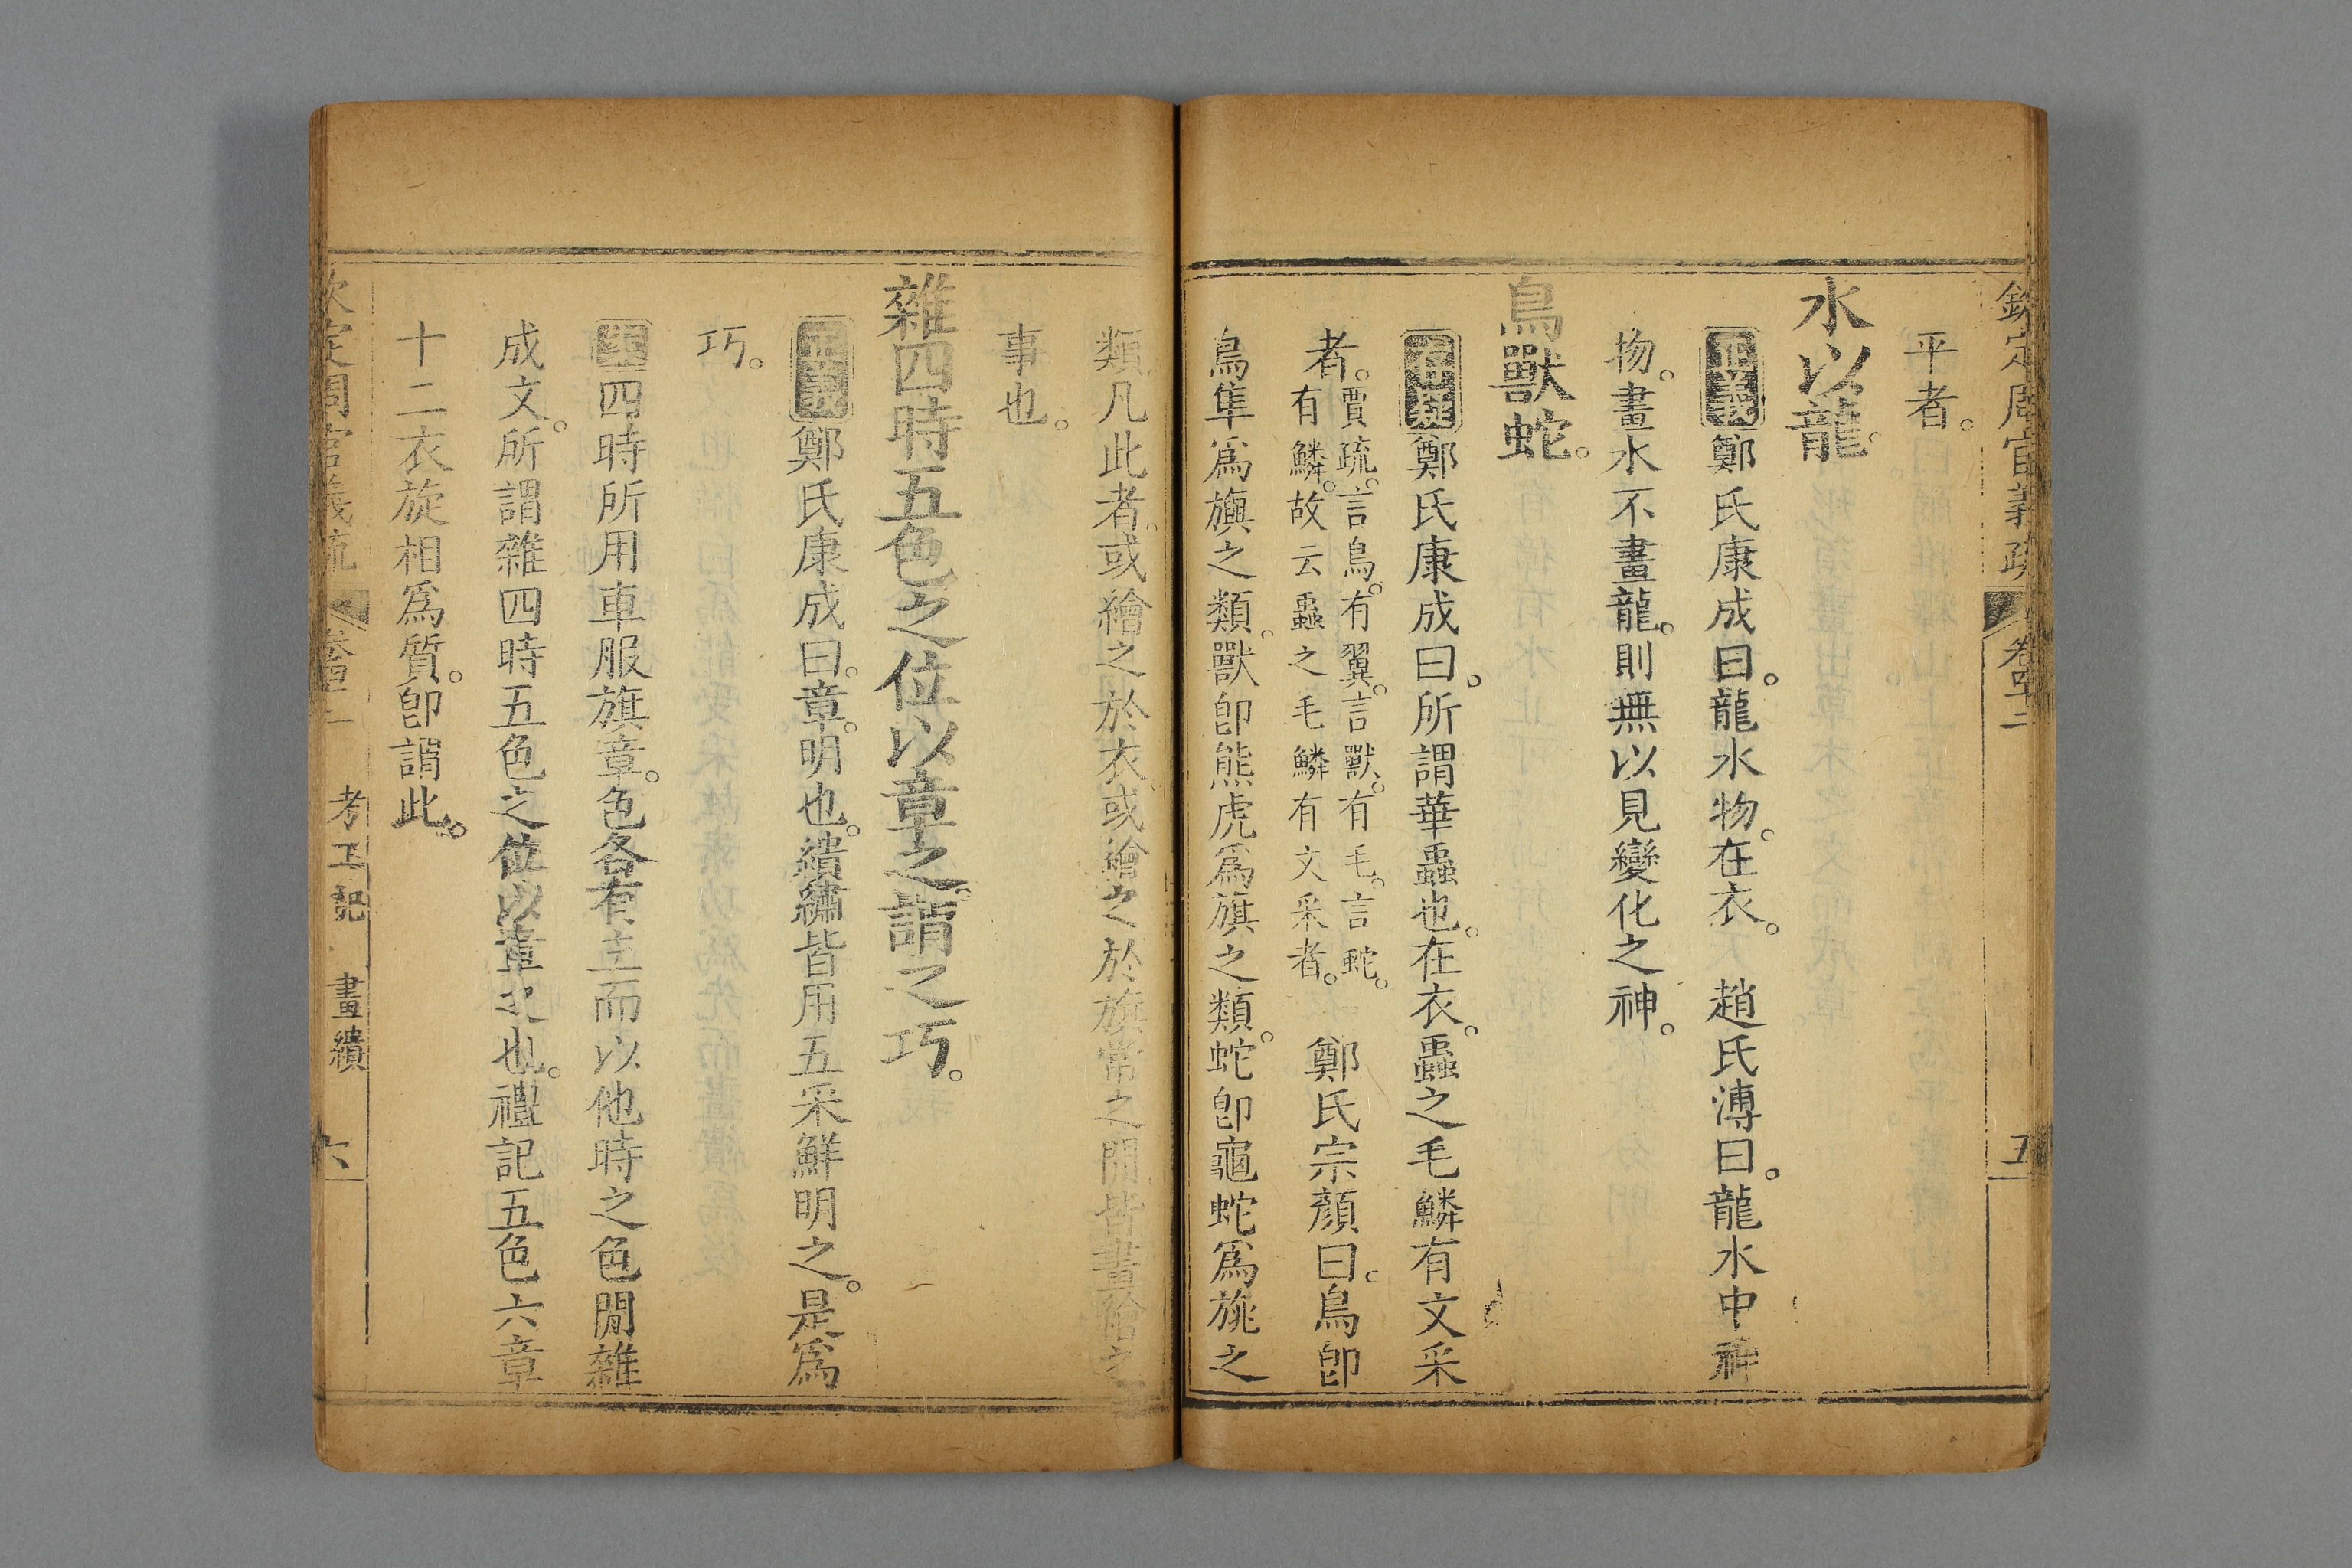 欽定周官義疏 卷四十二 五
平者。
水以龍。
正義鄭氏康成曰。龍水物。在衣。 趙氏溥曰。龍水中神
物。畫水不畫龍。則無以見變化之神。
鳥獸蛇。
正義鄭氏康成曰。所謂華蟲也。在衣。蟲之毛鱗有文采
者。賈疏。言鳥。有翼。言獸。有毛。言蛇。有鱗。故云蟲之毛鱗有文采者。 鄭氏宗顏曰。鳥卽
鳥隼爲旟之類。獸卽熊虎爲旗之類。蛇卽龜蛇爲旐之
類。凡此者。或繪之於衣。或繪之於旗常之閒。皆畫繪之
事也。
雜四時五色之位以章之。謂之巧。
正義鄭氏康成曰。章。明也。繢繡皆用五采鮮明之。是爲
巧。
四時所用車服旗章。色各有主。而以他時之色閒雜
成文。所謂雜四時五色之位以章之也。禮記五色六章
十二衣旋相爲質。卽謂此。
欽定周官義疏 卷四十二 考工記 畫繢 六